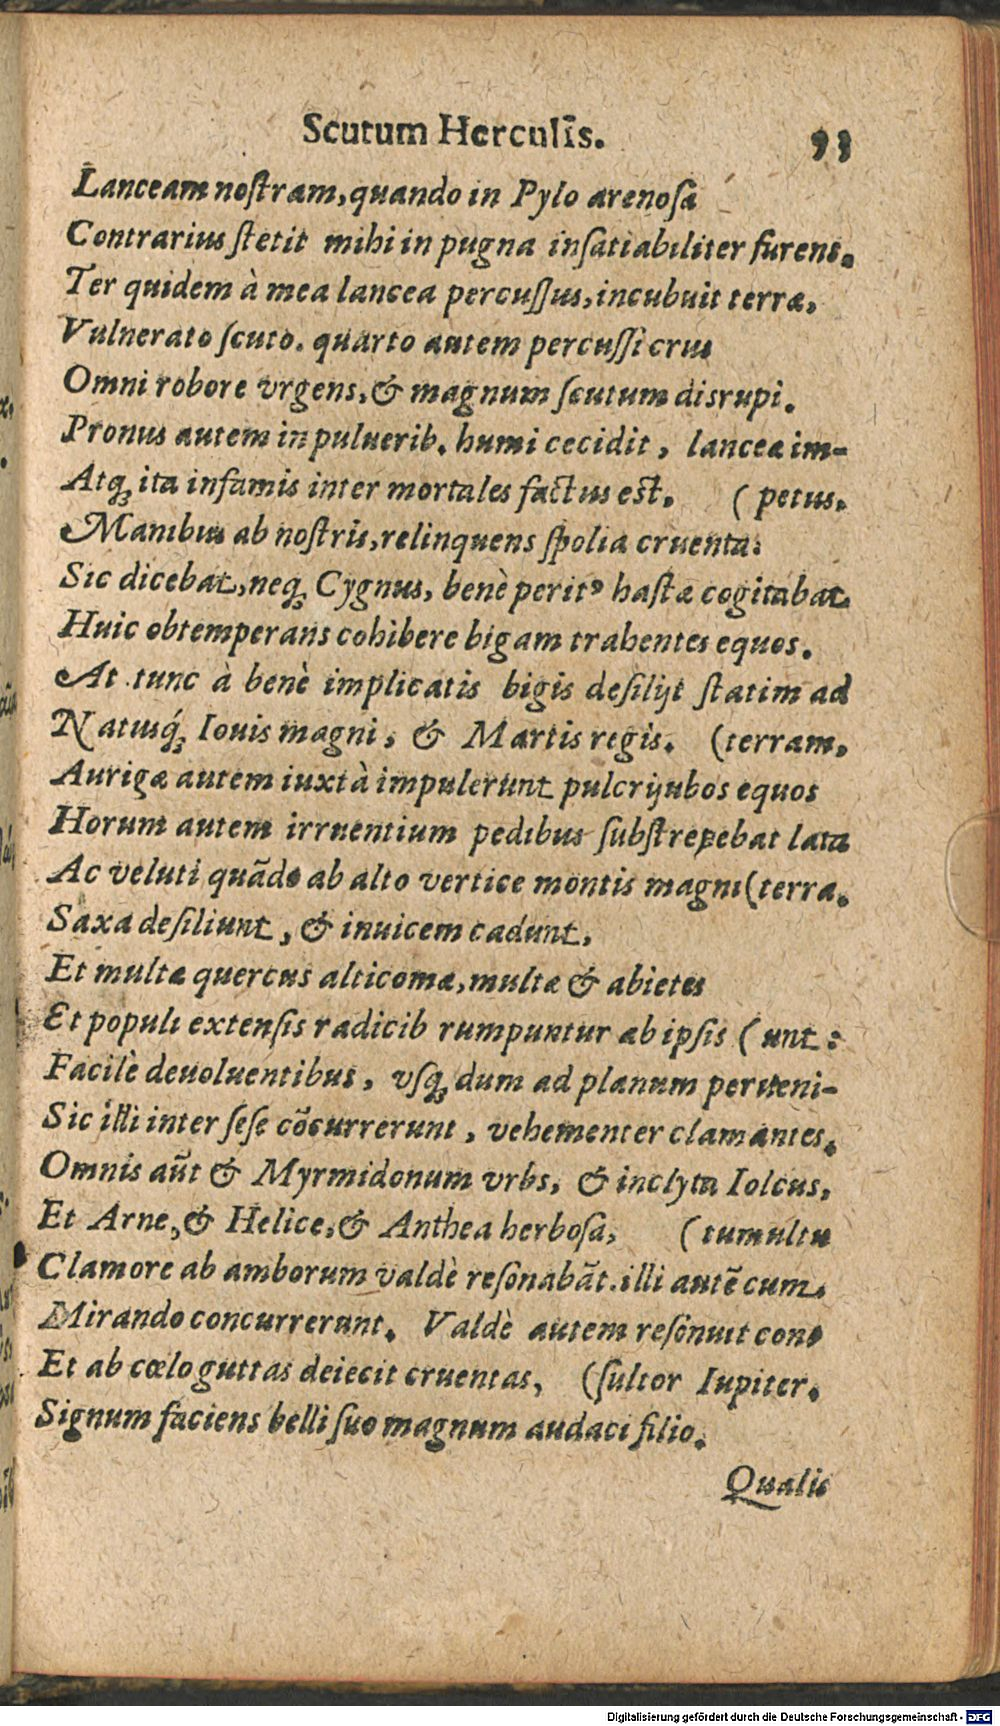 Scutum Herculis. 93
Lanceam noſtram, quando in Pylo arenoſa
Contrarius ſtetit mihi in pugna inſatiabiliter furens.
Ter quidem à mea lancea percuſſus, incubuit terræ,
Vulnerato ſcuto. quarto autem percuſſi crus
Omni robore vrgens, & magnum ſcutum disrupi.
Pronus autem in puluerib. humi cecidit, lanceæ im-
Atq; ita infamis inter mortales factus est. ( petus.
Manibus ab noſtris, relinquens ſpolia cruenta:
Sic dicebat, neq; Cygnus, benè peritꝰ haſtæ cogitabat
Huic obtemperans cohibere bigam trahentes equos.
At tunc à benè implicatis bigis deſilijt ſtatim ad
Natusq́; Iouis magni, & Martis regis. (terram,
Aurigæ autem iuxtà impulerunt pulcrijubos equos
Horum autem irruentium pedibus ſubſtrepebat lata
Ac veluti quãdo ab alto vertice montis magni (terra.
Saxa deſiliunt, & inuicem cadunt,
Et multæ quercus alticomæ, multæ & abietes
Et populi extenſis radicib rumpuntur ab ipſis ( unt:
Facilè deuoluentibus, vſq; dum ad planum perueni-
Sic illi inter ſeſe cõcurrerunt, vehementer clamantes.
Omnis aũt & Myrmidonum vrbs, & inclyta Iolcus,
Et Arne, & Helice, & Anthea herboſa, ( tumultu
Clamore ab amborum valdè reſonabãt. illi autẽ cum
Mirando concurrerunt. Valdè autem reſonuit con-
Et ab cœlo guttas deiecit cruentas, (ſultor Iupiter.
Signum faciens belli ſuo magnum audaci filio.
Qualis
Digitalisierung gefördert durch die Deutsche Forschungsgemeinschaft - DFG